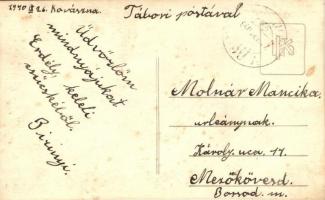 1940 IX 26. Kovászna.
Tábori postával
Üdvözlöm
mindnyájukat
Erdély keleti
csücskéből.
Birinyi.
Molnár Mancika
urleánynak.
Károly. uca. 17.
Mezőkövesd.
Borsod. m.